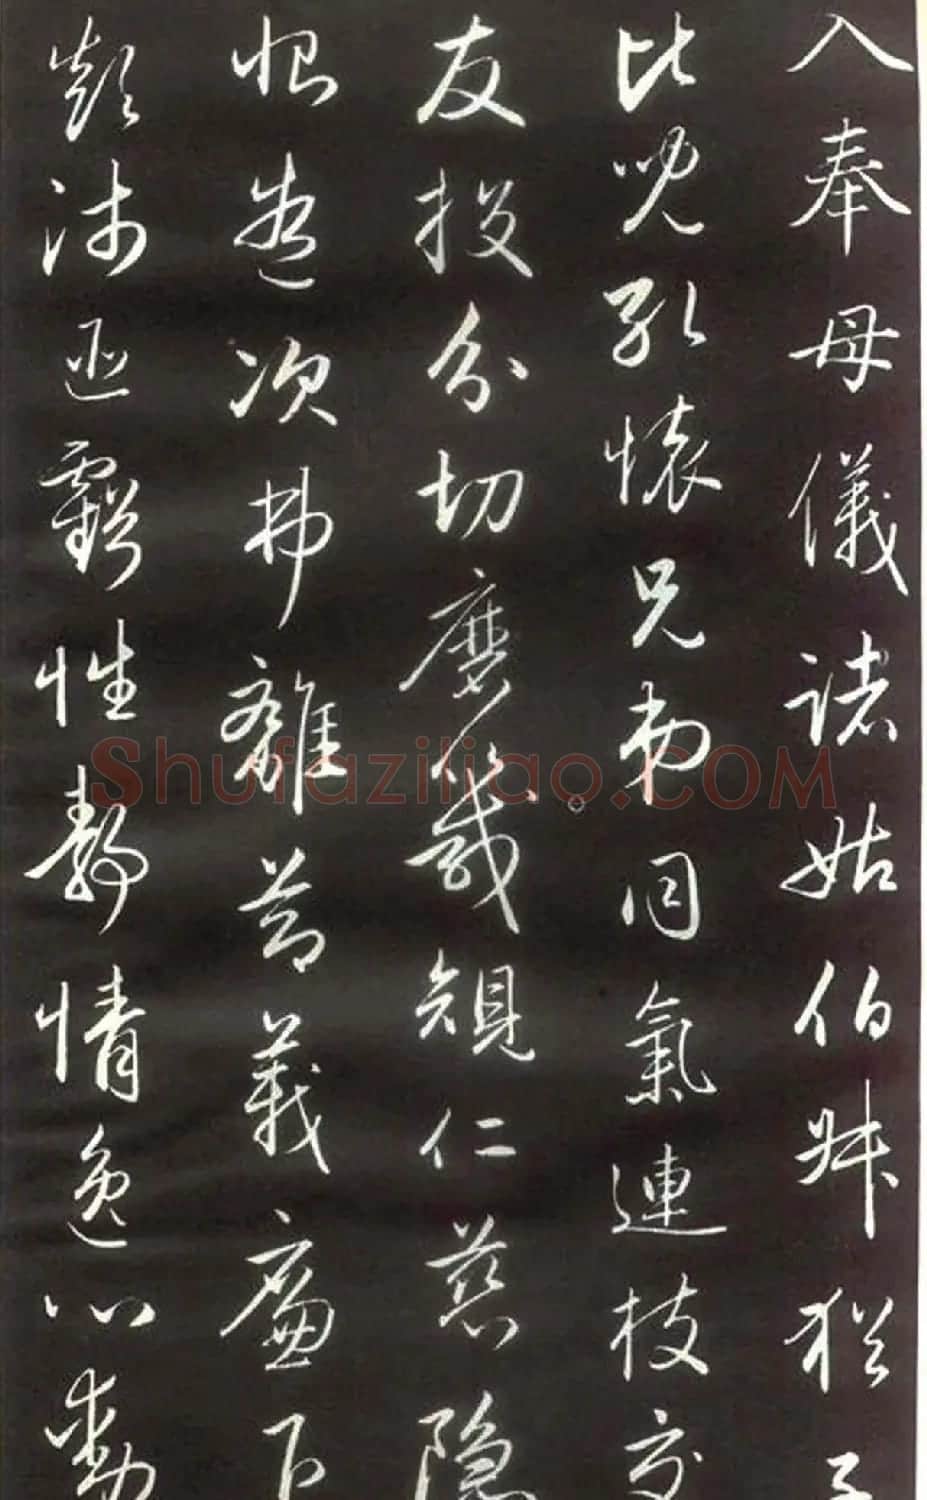 入奉母儀諸姑伯叔猶子
比兒孔懷兄弟同氣連枝交
友投分切磨箴規仁慈隱
惻造次弗離節義廉退
顛沛匪虧性靜情逸心動
Shufaziliao.COM